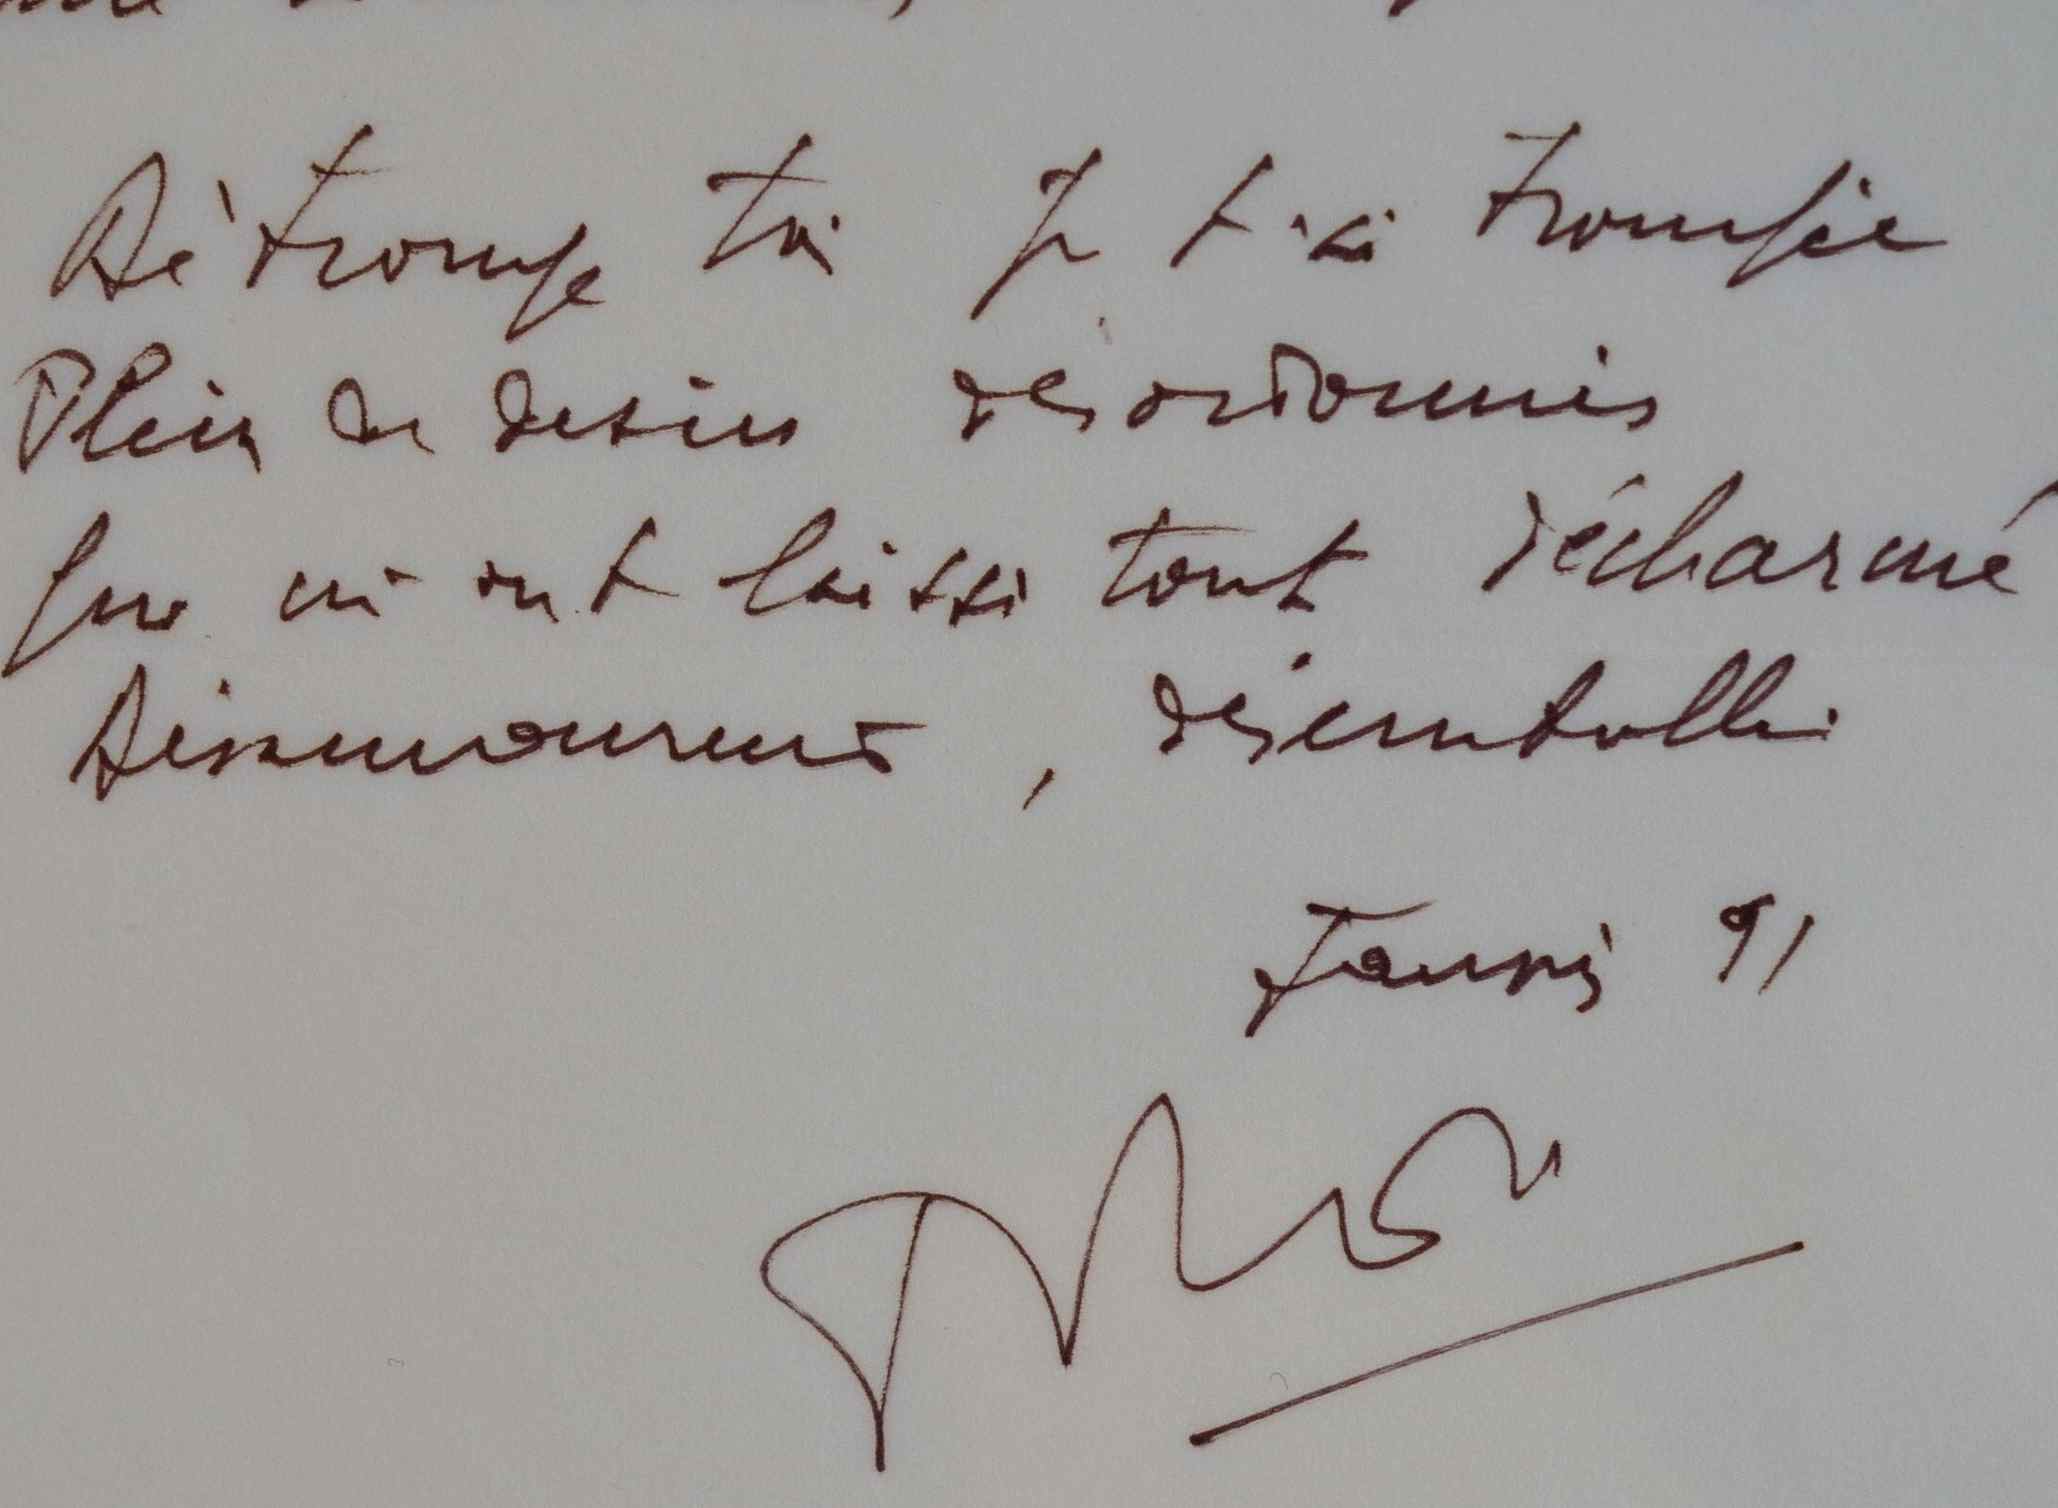 Détrompe toi Je t'ai trompée
Plein de desirs désordonnés
Qui m'ont laissé tout décharmé
Desamouré, désemballé
Janvier 91